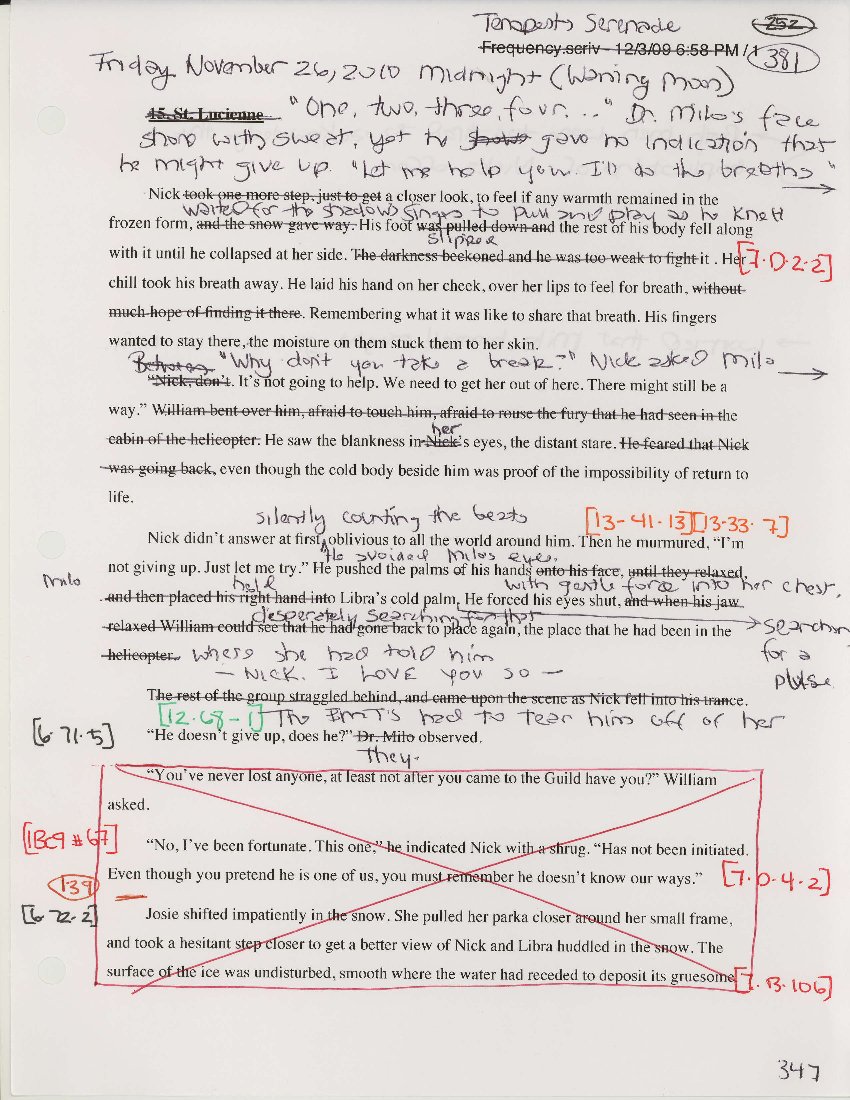 Tempests Serenade
252
Frequency.scriv - 12/3/09 6:58 PM / 1
381
Friday November 26, 2010 Midnight (Waning Moon)
45. St. Lucienne "One, two, three, four..." Dr. Milo's face
shone with sweat, yet he shows gave no indication that
he might give up. "Let me help you. I'll do the breaths"
Nick took one more step, just to get a closer look, to feel if any warmth remained in the
waited for the shadow singers to pull and play as he knelt
frozen form, and the snow gave way. His foot was pulled down and the rest of his body fell along
slipped
with it until he collapsed at her side. The darkness beckoned and he was too weak to fight it . Her
[7·D·2·2]
chill took his breath away. He laid his hand on her cheek, over her lips to feel for breath, without
much hope of finding it there. Remembering what it was like to share that breath. His fingers
wanted to stay there, the moisture on them stuck them to her skin.
"Why don't you take a break?" Nick asked Milo
"Nick, don't. It's not going to help. We need to get her out of here. There might still be a
way." William bent over him, afraid to touch him, afraid to rouse the fury that he had seen in the
her
cabin of the helicopter. He saw the blankness in Nick's eyes, the distant stare. He feared that Nick
was going back, even though the cold body beside him was proof of the impossibility of return to
life.
silently counting the beats
[13-41-13][13-33-7]
Nick didn't answer at first, oblivious to all the world around him. Then he murmured, "I'm
He avoided Milos eyes.
not giving up. Just let me try." He pushed the palms of his hands onto his face, until they relaxed,
Milo
held
with gentle force into her chest,
and then placed his right hand into Libra's cold palm. He forced his eyes shut, and when his jaw
desperately searching for that
relaxed William could see that he had gone back to place again, the place that he had been in the
searching
for a
pulse
helicopter. where she had told him
— NICK. I LOVE YOU SO —
The rest of the group straggled behind, and came upon the scene as Nick fell into his trance.
[12·68-1] The EMT's had to tear him off of her
[6·71·5]
"He doesn't give up, does he?" Dr. Milo observed.
They.
"You've never lost anyone, at least not after you came to the Guild have you?" William
asked.
[1Bc9 #67]
"No, I've been fortunate. This one," he indicated Nick with a shrug. "Has not been initiated.
Even though you pretend he is one of us, you must remember he doesn't know our ways."
[7·D·4·2]
139
[6·72·2]
Josie shifted impatiently in the snow. She pulled her parka closer around her small frame,
and took a hesitant step closer to get a better view of Nick and Libra huddled in the snow. The
surface of the ice was undisturbed, smooth where the water had receded to deposit its gruesome
[7·B·106]
347